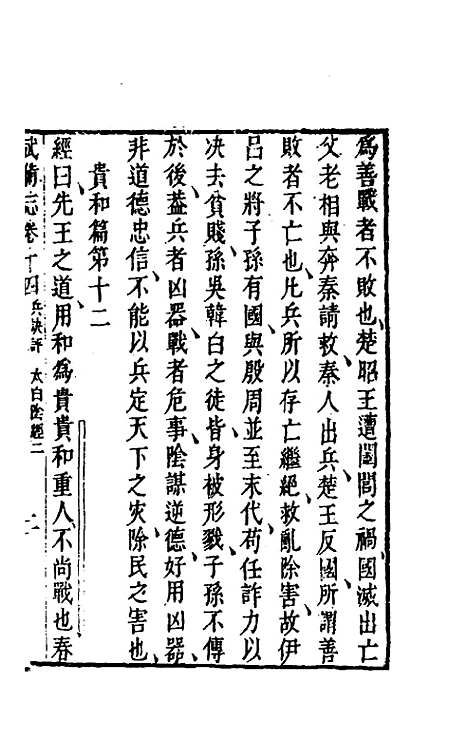 爲善戰者不敗也楚昭王遭闔閭之禍國滅出亡
父老相與奔秦請救秦人出兵楚王反國所謂善
敗者不亡也凡兵所以存亡繼絕救亂除害故伊
呂之將子孫有國與殷周並至末代苟任詐力以
决去貧賤孫吳韓白之徒皆身被形戮子孫不傳
於後葢兵者凶器戰者危事陰謀逆德好用凶器
非道德忠信不能以兵定天下之灾除民之害也
貴和篇第十二
經曰先王之道用和爲貴貴和重人不尚戰也春
武備志卷十四 兵訣評 太白陰經二 二